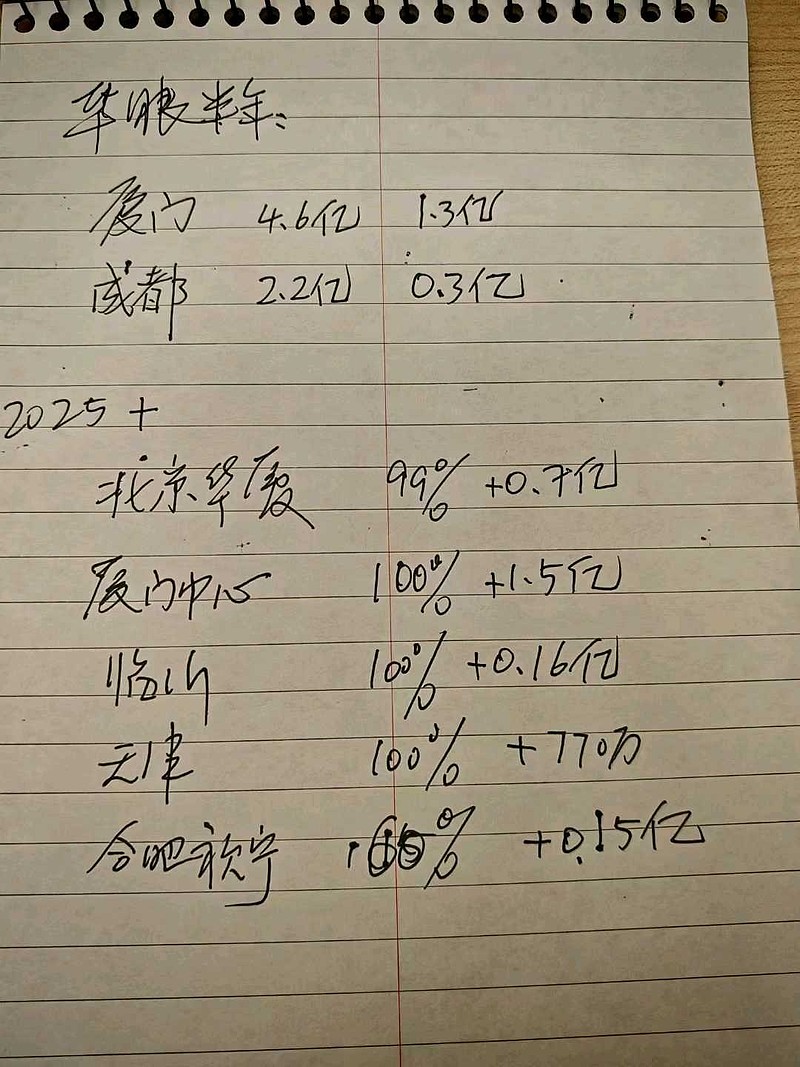 华眼半年:
厦门 4.6亿 1.3亿
成都 2.2亿 0.3亿
2025 +
北京华厦 99% +0.7亿
厦门中心 100% +1.5亿
临沂 100% +0.16亿
天津 100% +770万
合肥 % +0.15亿